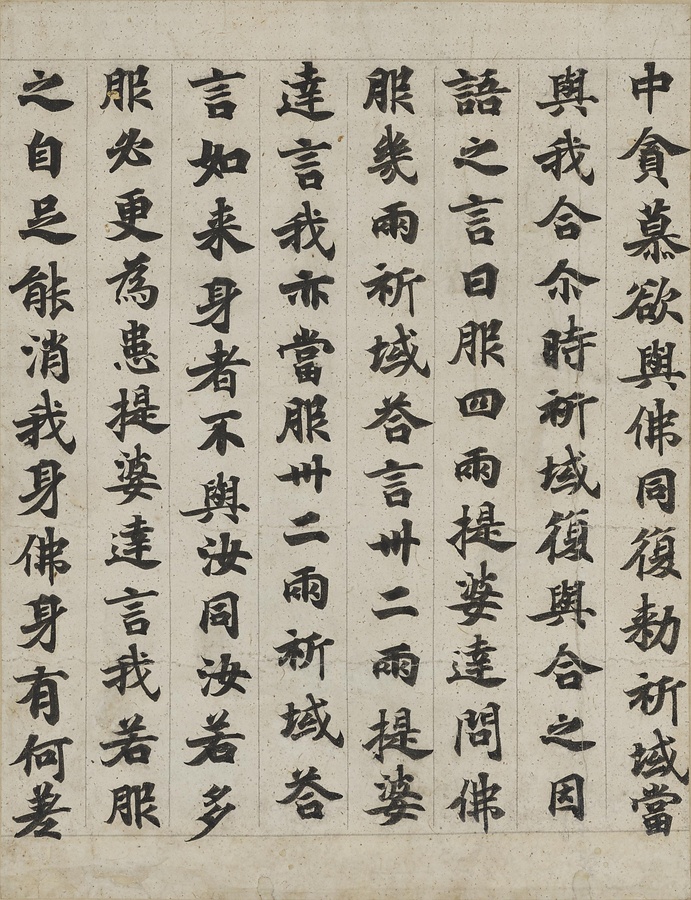 中貪慕欲與佛同復勑祈域當
與我合尒時祈域復與合之因
語之言日服四兩提婆達問佛
服幾兩祈域荅言卅二兩提婆
達言我亦當服卅二兩祈域荅
言如来身者不與汝同汝若多
服必更為患提婆達言我若服
之自足能消我身佛身有何差